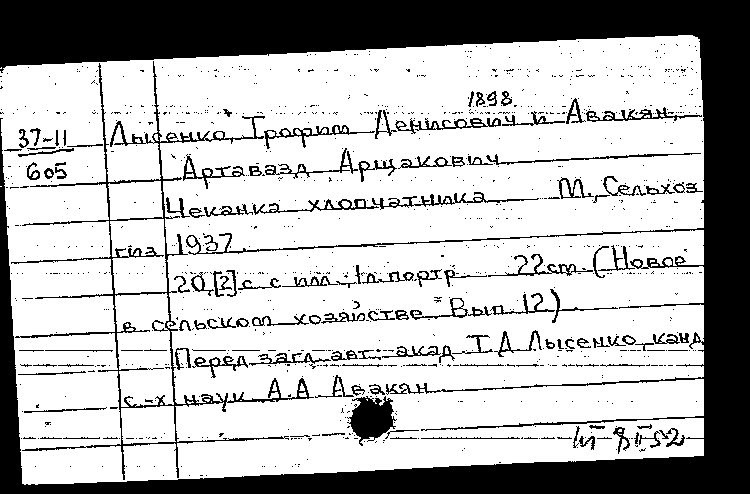 1898
37-11 Лысенко, Трофим Денисович и Авакян,
605 Артавазд Арщакович
Чеканка хлопчатника М., Сельхоз
гиз, 1937.
20,[2] с. с илл.; 1 л. портр. 22 см. (Новое
в сельском хозяйстве. Вып. 12)
Перед загл. авт.: акад. Т.Д. Лысенко, канд.
с.-х. наук А.А. Авакян.
8 II 52